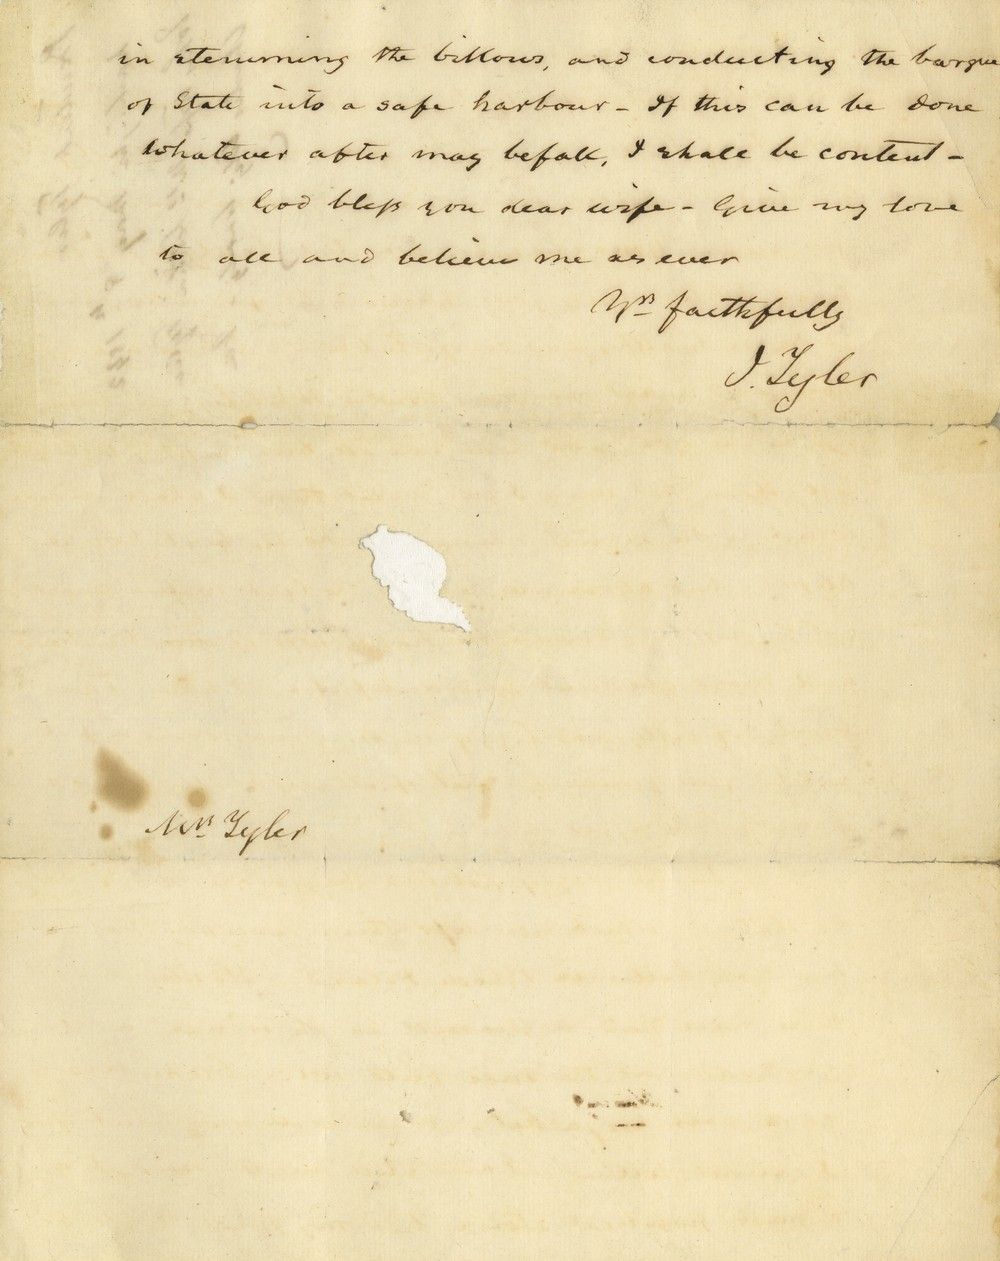 in stemming the billows, and conducting the barque
of State into a safe harbour - If this can be done
whatever after may befall, I shall be content -
God bless you dear wife - Give my love
to all and believe me as ever
Yrs faithfully
J. Tyler
Mrs Tyler